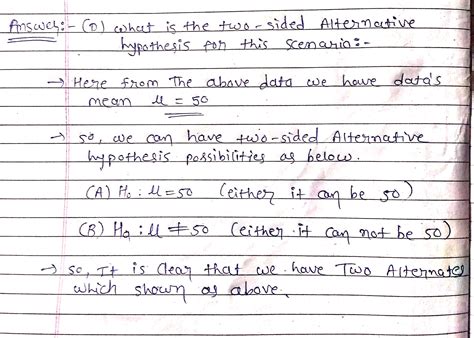 Answer:- (D) what is the two-sided Alternative
hypothesis for this scenario:-
→ Here from The above data we have data's
mean μ = 50
→ so, we can have two-sided Alternative
hypothesis possibilities as below.
(A) H₀ : μ = 50 (either it can be 50)
(B) Hₐ : μ ≠ 50 (either it can not be 50)
→ so, It is Clear that we have Two Alternates
which shown as above.